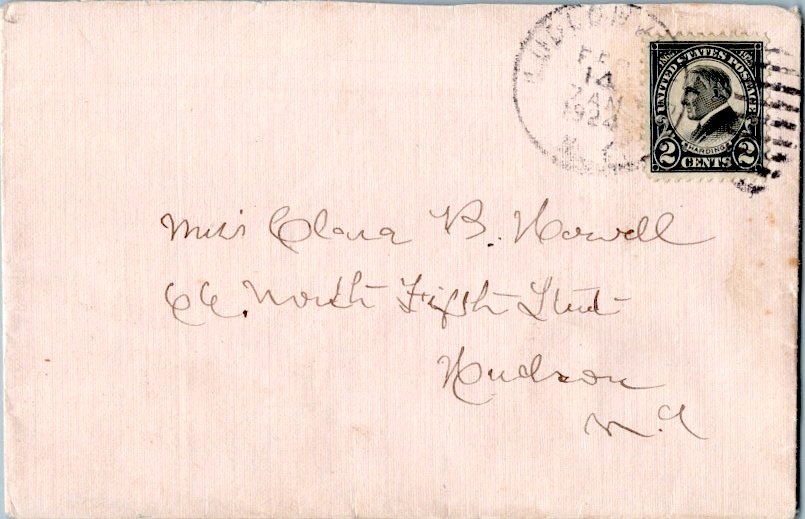 FEB
14
7 AM
1924
1865 1923
UNITED STATES POSTAGE
HARDING
2 CENTS 2
Miss Clara B. Howell
66. North Fifth Street
Hudson
N.Y